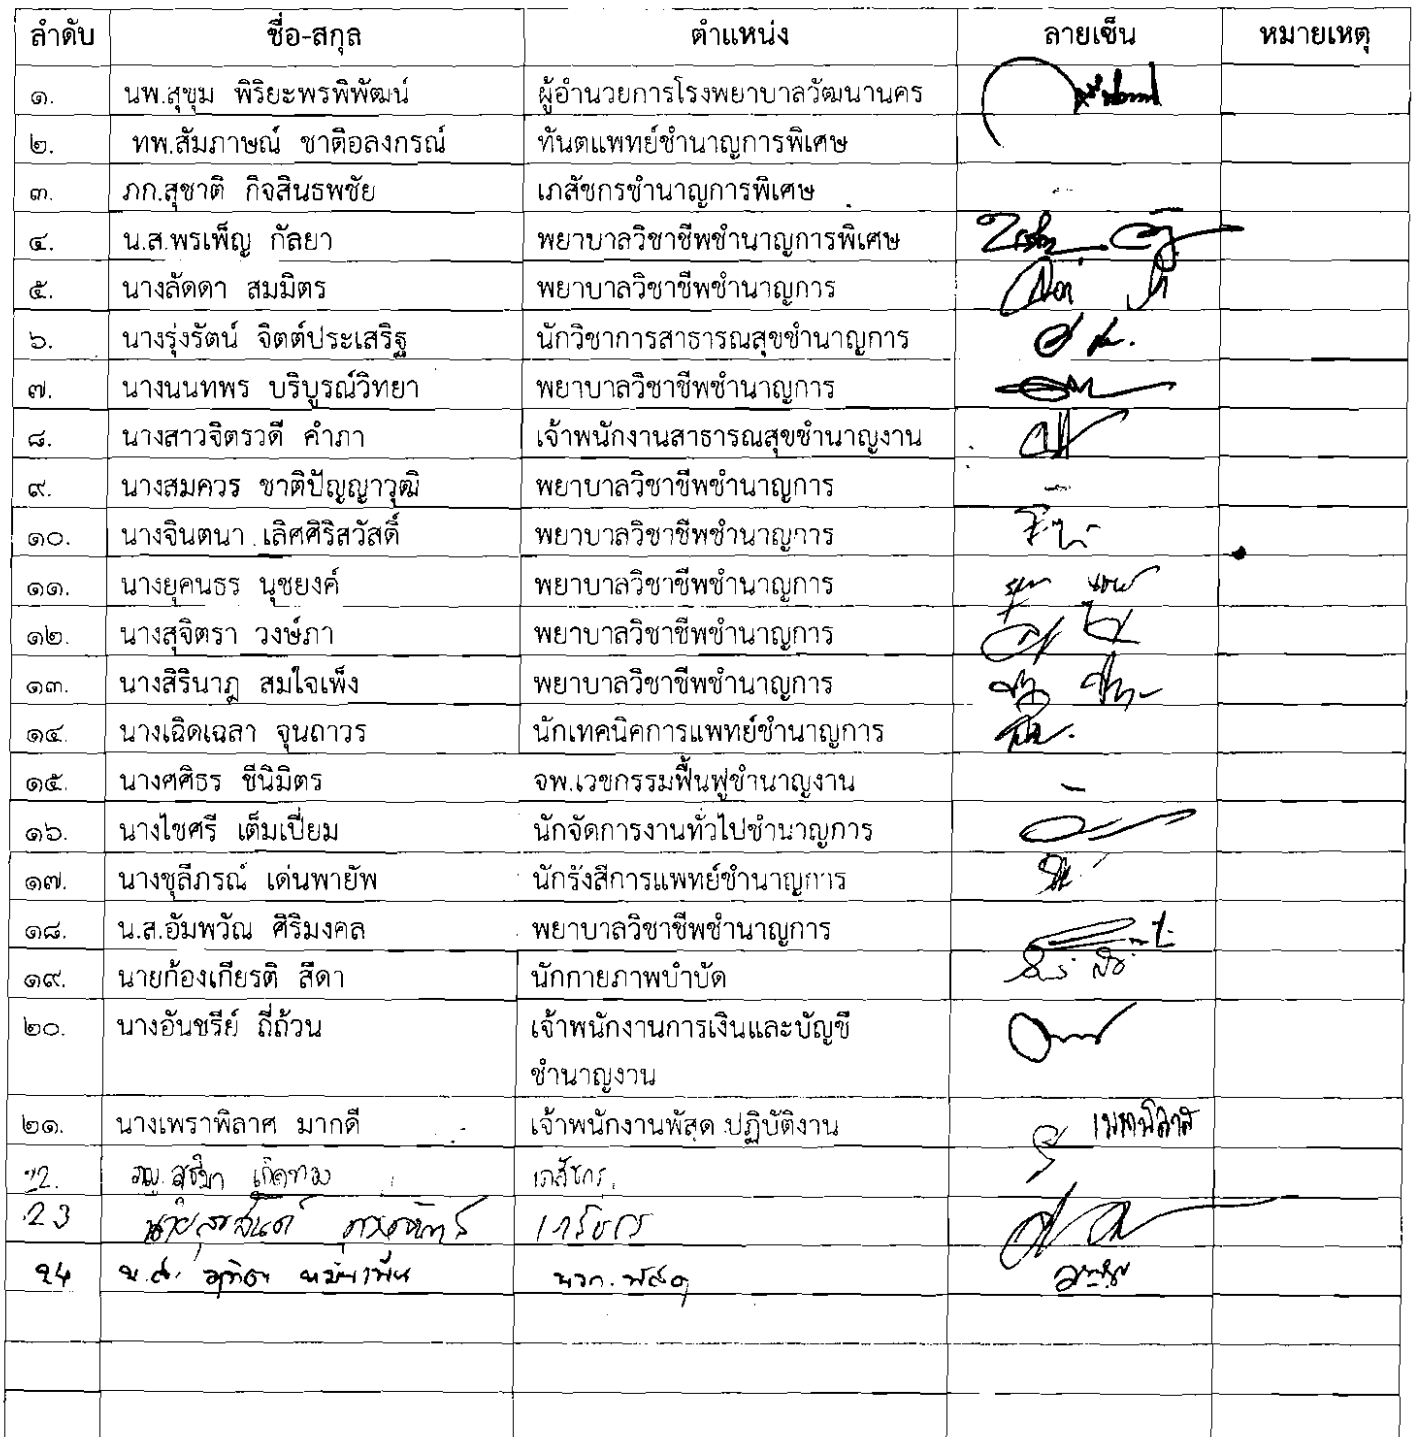 ลำดับ ชื่อ-สกุล ตำแหน่ง ลายเซ็น หมายเหตุ
๑. นพ.สุขุม พิริยะพรพิพัฒน์ ผู้อำนวยการโรงพยาบาลวัฒนานคร
๒. ทพ.สัมภาษณ์ ชาติอลงกรณ์ ทันตแพทย์ชำนาญการพิเศษ
๓. ภก.สุชาติ กิจสินธพชัย เภสัชกรชำนาญการพิเศษ
๔. น.ส.พรเพ็ญ กัลยา พยาบาลวิชาชีพชำนาญการพิเศษ
๕. นางลัดดา สมมิตร พยาบาลวิชาชีพชำนาญการ
๖. นางรุ่งรัตน์ จิตต์ประเสริฐ นักวิชาการสาธารณสุขชำนาญการ
๗. นางนนทพร บริบูรณ์วิทยา พยาบาลวิชาชีพชำนาญการ
๘. นางสาวจิตรวดี คำภา เจ้าพนักงานสาธารณสุขชำนาญงาน
๙. นางสมควร ชาติปัญญาวุฒิ พยาบาลวิชาชีพชำนาญการ
๑๐. นางจินตนา เลิศศิริสวัสดิ์ พยาบาลวิชาชีพชำนาญการ
๑๑. นางยุคนธร นุชยงค์ พยาบาลวิชาชีพชำนาญการ
๑๒. นางสุจิตรา วงษ์ภา พยาบาลวิชาชีพชำนาญการ
๑๓. นางสิรินาฎ สมใจเพ็ง พยาบาลวิชาชีพชำนาญการ
๑๔. นางเฉิดเฉลา จุนถาวร นักเทคนิคการแพทย์ชำนาญการ
๑๕. นางศศิธร ชีนิมิตร จพ.เวชกรรมฟื้นฟูชำนาญงาน
๑๖. นางไชศรี เต็มเปี่ยม นักจัดการงานทั่วไปชำนาญการ
๑๗. นางชุลีภรณ์ เด่นพายัพ นักรังสีการแพทย์ชำนาญการ
๑๘. น.ส.อัมพวัณ ศิริมงคล พยาบาลวิชาชีพชำนาญการ
๑๙. นายก้องเกียรติ สีดา นักกายภาพบำบัด
๒๐. นางอันชรีย์ ถี่ถ้วน เจ้าพนักงานการเงินและบัญชี
ชำนาญงาน
๒๑. นางเพราพิลาศ มากดี เจ้าพนักงานพัสดุ ปฏิบัติงาน เพราพิลาศ
22. เภสัชกร
23 เภสัชกร
24 น.ส. นวก. พัสดุ